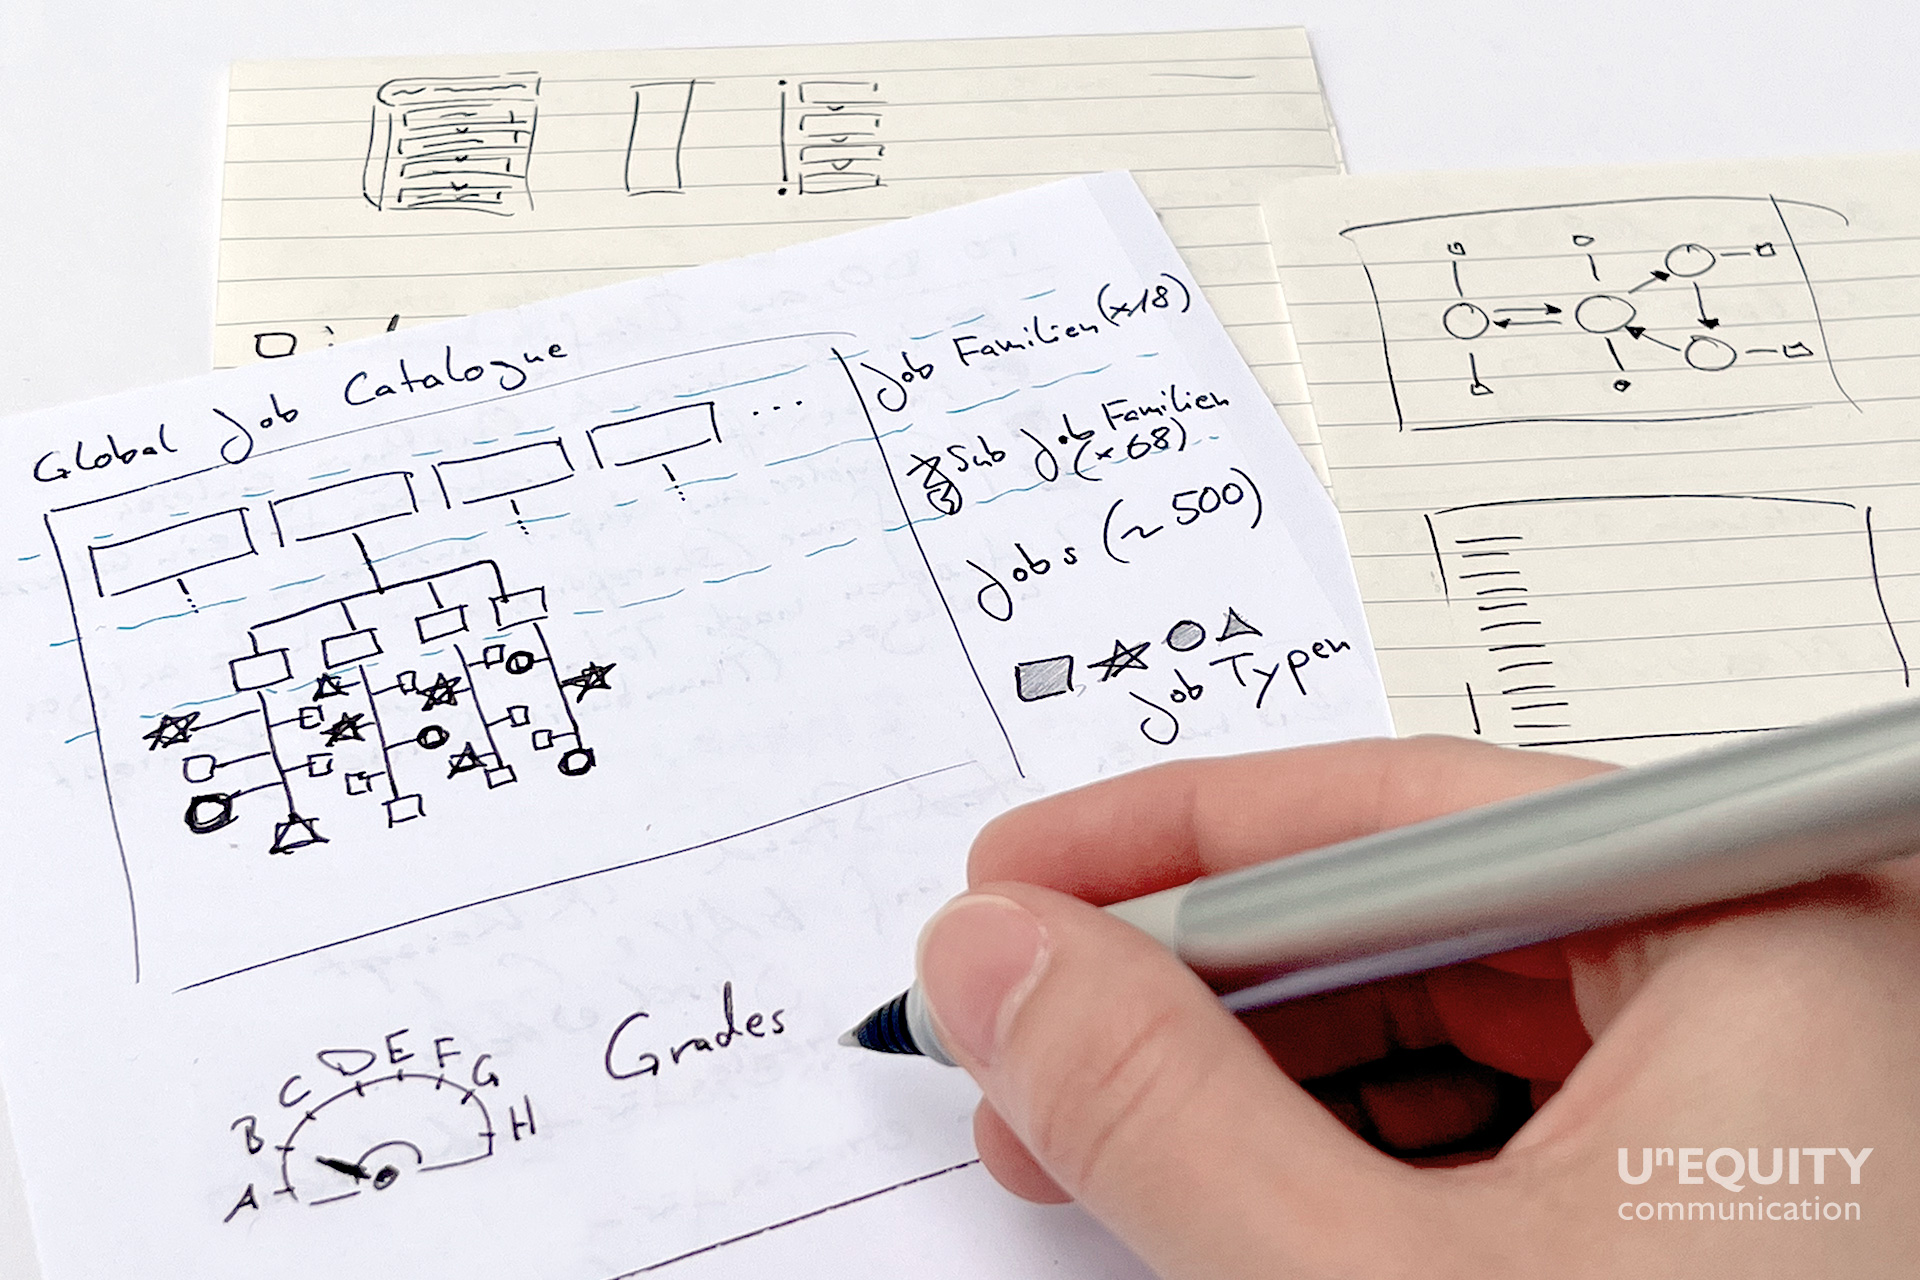 Global Job Catalogue
...
Job Familien (x18)
Sub Job Familien
(x 68)
Jobs (~ 500)
Job Typen
Grades
A
B
C
D
E
F
G
H
UnEQUITY
communication